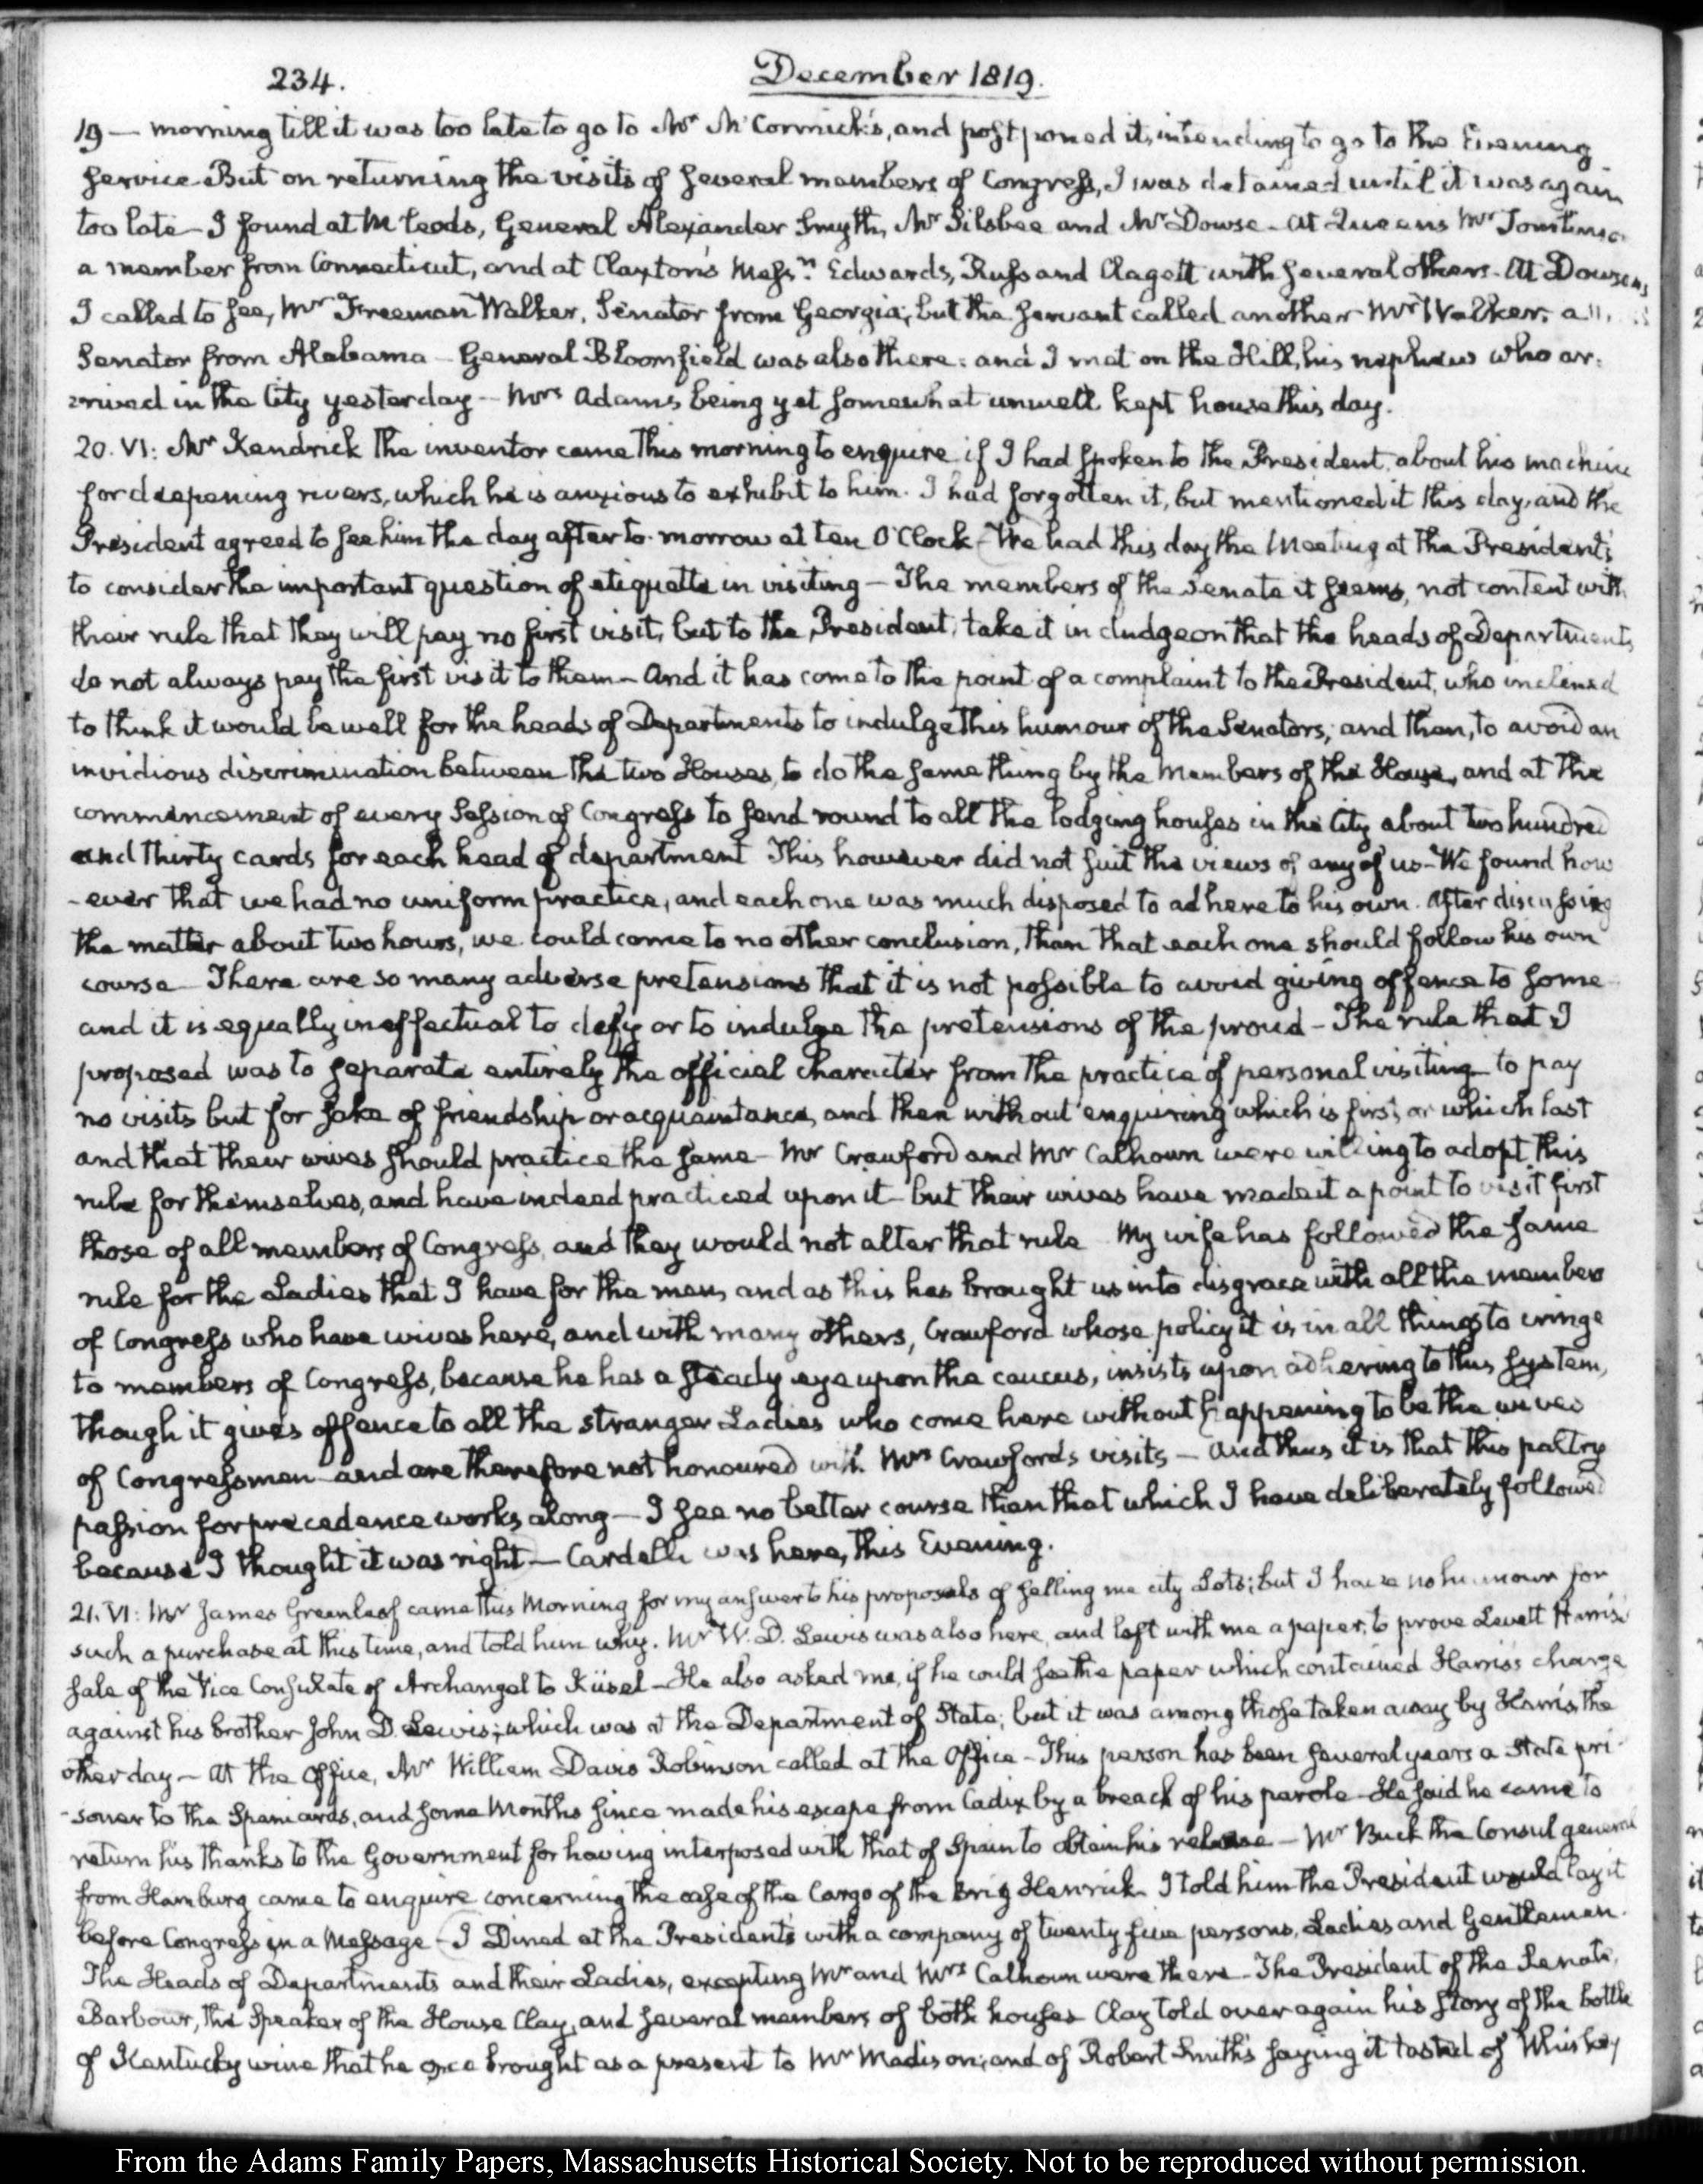 234.
December 1819.
19 — morning till it was too late to go to Mr McCormick's, and postponed it, intending to go to the Evening
service. But on returning the visits of several members of Congress, I was detained until it was again
too late — I found at McLeods, General Alexander Smyth, Mr Silsbee and Mr Dowse — at Queens Mr Tomlinson
a member from Connecticut, and at Claxton's Messrs Edwards, Russ and Clagett with several others — At Dowson's
I called to see, Mr Freeman Walker, Senator from Georgia; but the servant called another Mr Walker, a
Senator from Alabama — General Bloomfield was also there: and I met on the Hill, his nephew who ar-
-rived in the City yesterday — Mrs Adams being yet somewhat unwell kept house this day.
20. VI: Mr Kendrick the inventor came this morning to enquire if I had spoken to the President, about his machine
for deepening rivers, which he is anxious to exhibit to him. I had forgotten it, but mentioned it this day, and the
President agreed to see him the day after to-morrow at ten O'Clock — We had this day the Meeting at the President's
to consider the important question of etiquette in visiting — The members of the Senate it seems, not content with
their rule that they will pay no first visit, but to the President, take it in dudgeon that the heads of Departments
do not always pay the first visit to them — And it has come to the point of a complaint to the President, who inclined
to think it would be well for the heads of Departments to indulge this humour of the Senators; and then, to avoid an
invidious discrimination between the two Houses, to do the same thing by the Members of the House, and at the
commencement of every Session of Congress to send round to all the lodging houses in the City about two hundred
and thirty cards for each head of department This however did not suit the views of any of us — We found how
-ever that we had no uniform practice, and each one was much disposed to adhere to his own. After discussing
the matter about two hours, we could come to no other conclusion, than that each one should follow his own
course — There are so many adverse pretensions that it is not possible to avoid giving offence to some —
and it is equally ineffectual to defy or to indulge the pretensions of the proud — The rule that I
proposed was to separate entirely the official character from the practice of personal visiting — to pay
no visits but for sake of friendship or acquaintance, and then without enquiring which is first, or which last
and that their wives should practice the same — Mr Crawford and Mr Calhoun were willing to adopt this
rule for themselves, and have indeed practiced upon it — but their wives have made it a point to visit first
those of all members of Congress, and they would not alter that rule My wife has followed the same
rule for the Ladies that I have for the men, and as this has brought us into disgrace with all the members
of Congress who have wives here, and with many others, Crawford whose policy it is in all things to cringe
to members of Congress, because he has a steady eye upon the caucus, insists upon adhering to this system,
though it gives offence to all the stranger Ladies who come here without happening to be the wives
of Congressmen — and are therefore not honoured with Mrs Crawford's visits — And thus it is that this paltry
passion for precedence works along — I see no better course than that which I have deliberately followed
because I thought it was right — Cardelli was here, this Evening.
21. VI: Mr James Greenleaf came this Morning for my answer to his proposals of selling me city Lots; but I have no humour for
such a purchase at this time, and told him why. Mr W. D. Lewis was also here, and left with me a paper, to prove Levett Harris's
sale of the Vice Consulate of Archangel to Küsel — He also asked me, if he could see the paper which contained Harris's charge
against his brother John D. Lewis; which was at the Department of State; but it was among those taken away by Harris, the
other day — At the Office, Mr William Davis Robinson called at the Office — This person has been several years a State pri-
-soner to the Spaniards, and some Months since made his escape from Cadiz by a breach of his parole — He said he came to
return his thanks to the Government for having interposed with that of Spain to obtain his release — Mr Buck the Consul general
from Hamburg came to enquire concerning the case of the Cargo of the Brig Henrick I told him the President would lay it
before Congress in a Message — I Dined at the President's with a company of twenty five persons, Ladies and Gentlemen.
The Heads of Departments and their Ladies, excepting Mr and Mrs Calhoun were there — The President of the Senate,
Barbour, the Speaker of the House Clay, and several members of both houses Clay told over again his story of the bottle
of Kentucky wine that he once brought as a present to Mr Madison; and of Robert Smith's saying it tasted of Whiskey
From the Adams Family Papers, Massachusetts Historical Society. Not to be reproduced without permission.